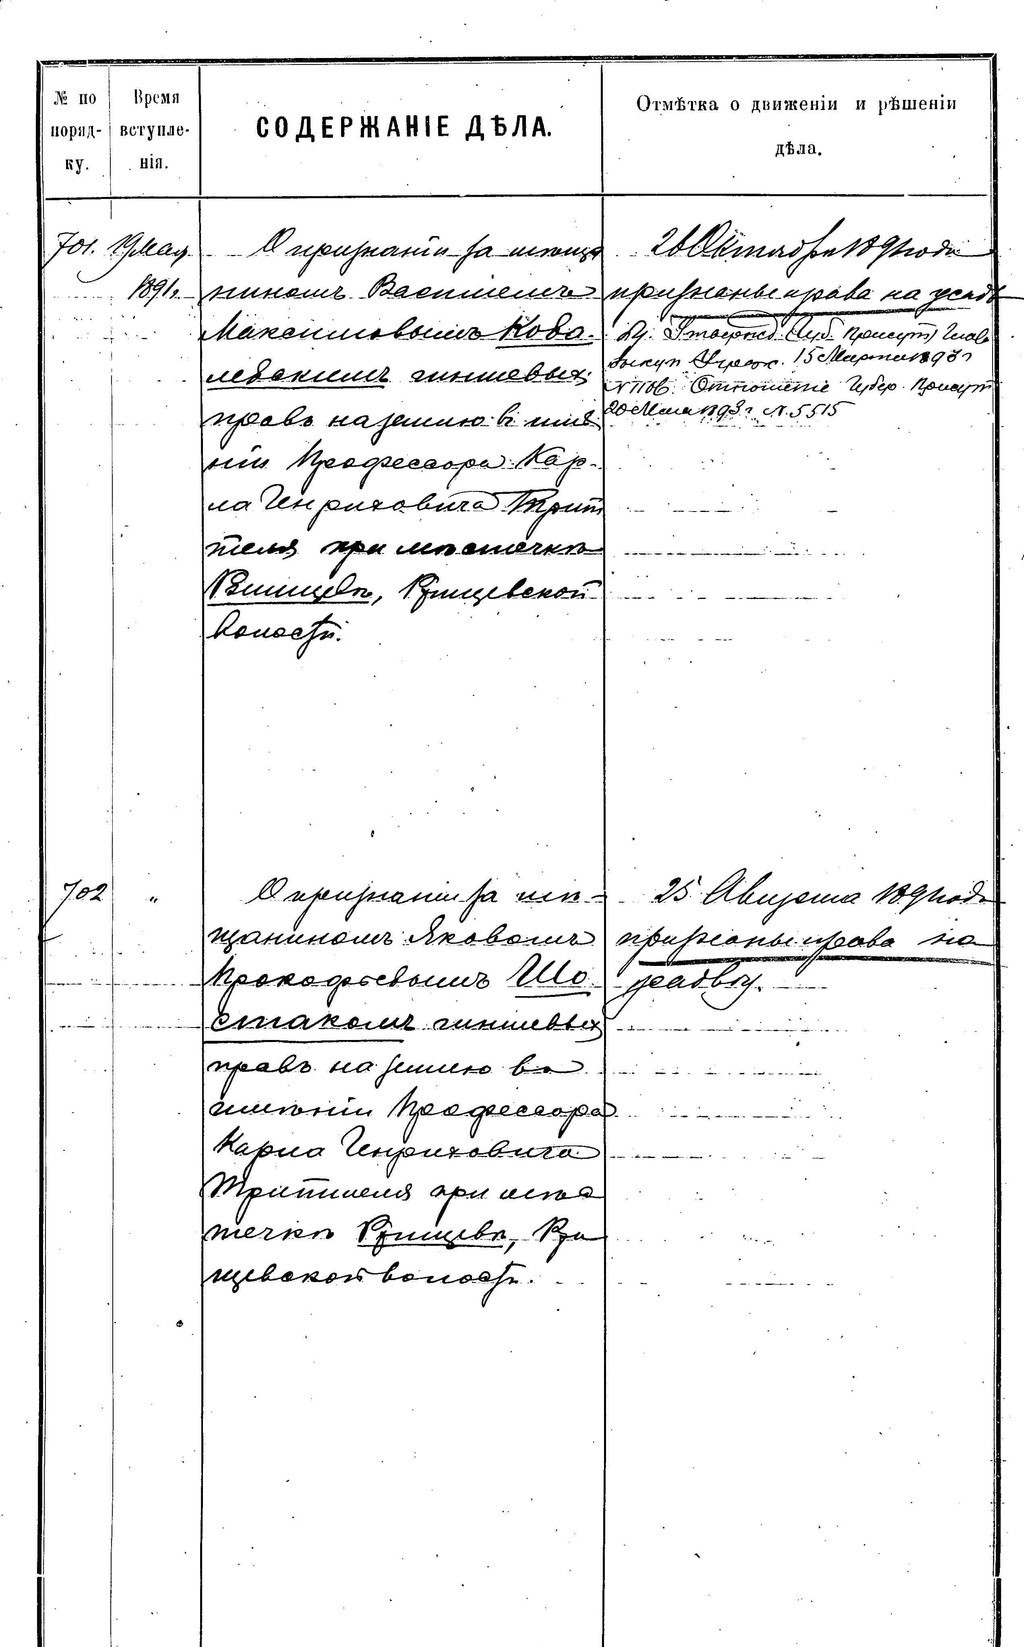 № по порядку.
Время вступленія.
СОДЕРЖАНІЕ ДѢЛА.
Отмѣтка о движеніи и рѣшеніи
дѣла.
701. 19 Мая
1891 г.
О признаніи за мѣща
ниномъ Василіемъ
Максимовымъ Кова-
левскимъ чиншевыхъ
правъ на землю въ имѣ
ніи Профессора Кар-
ла Генриховича Трит
теля при мѣстечкѣ
Ржищевѣ, Ржищевской
волости.
26 Октября 1891 года
признаны права на усадь
бу. Утвержд. Губ. Присут) Глав
Выкуп. Учреж. 15 Марта 1893 г
Отношеніе Губер. Присут
20 Мая 1893 г N. 5515
702 "
О признаніи за мѣ-
щаниномъ Яковомъ
Прокофьевымъ Шо
стакомъ чиншевыхъ
правъ на землю въ
имѣніи Профессора
Карла Генриховича
Триттеля при мѣс
течкѣ Ржищевѣ, Ржи
щевской волости.
25 Августа 1891 года
признаны права на
усадьбу.